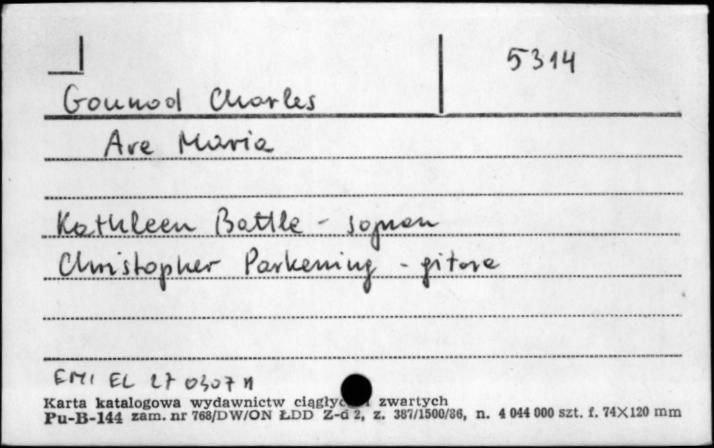 5314
Gounod Charles
Ave Maria
Kathleen Battle - sopran
Christopher Parkening - gitara
EMI EL 27 0307 1
Karta katalogowa wydawnictw zwartych
Pu-B-144 zam. nr 768/DW/ON ŁDD Z-d 2, z. 387/1500/86, n. 4 044 000 szt. f. 74×120 mm